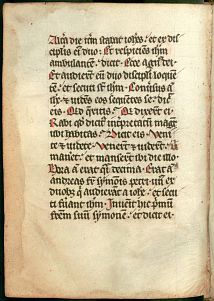 Alia die iterum stabat iohes. et ex dis
cipulis eius duo. Et respiciens ihm
ambulantem. dicit. Ecce agnus dei.
Et audierunt eum duo discipuli loquen
tem. et secuti sunt ihm. Conversus
ihs. et videns eos sequentes se. dic
eis. Quid queritis. Qui dixerunt ei.
Rabi qd dicitur interpretatum magister
ubi habitas. Dicit eis. Veni
te et videte. Venerunt et viderunt ubi
maneret. et manserunt ibi die illo.
Hora autem erat quasi decima. Erat autem
andreas frater symonis petri unus ex
duobus qui audierant a iohe. et secu
ti fuerant ihm. Invenit hic primum
fratrem suum symonem. et dicit ei.